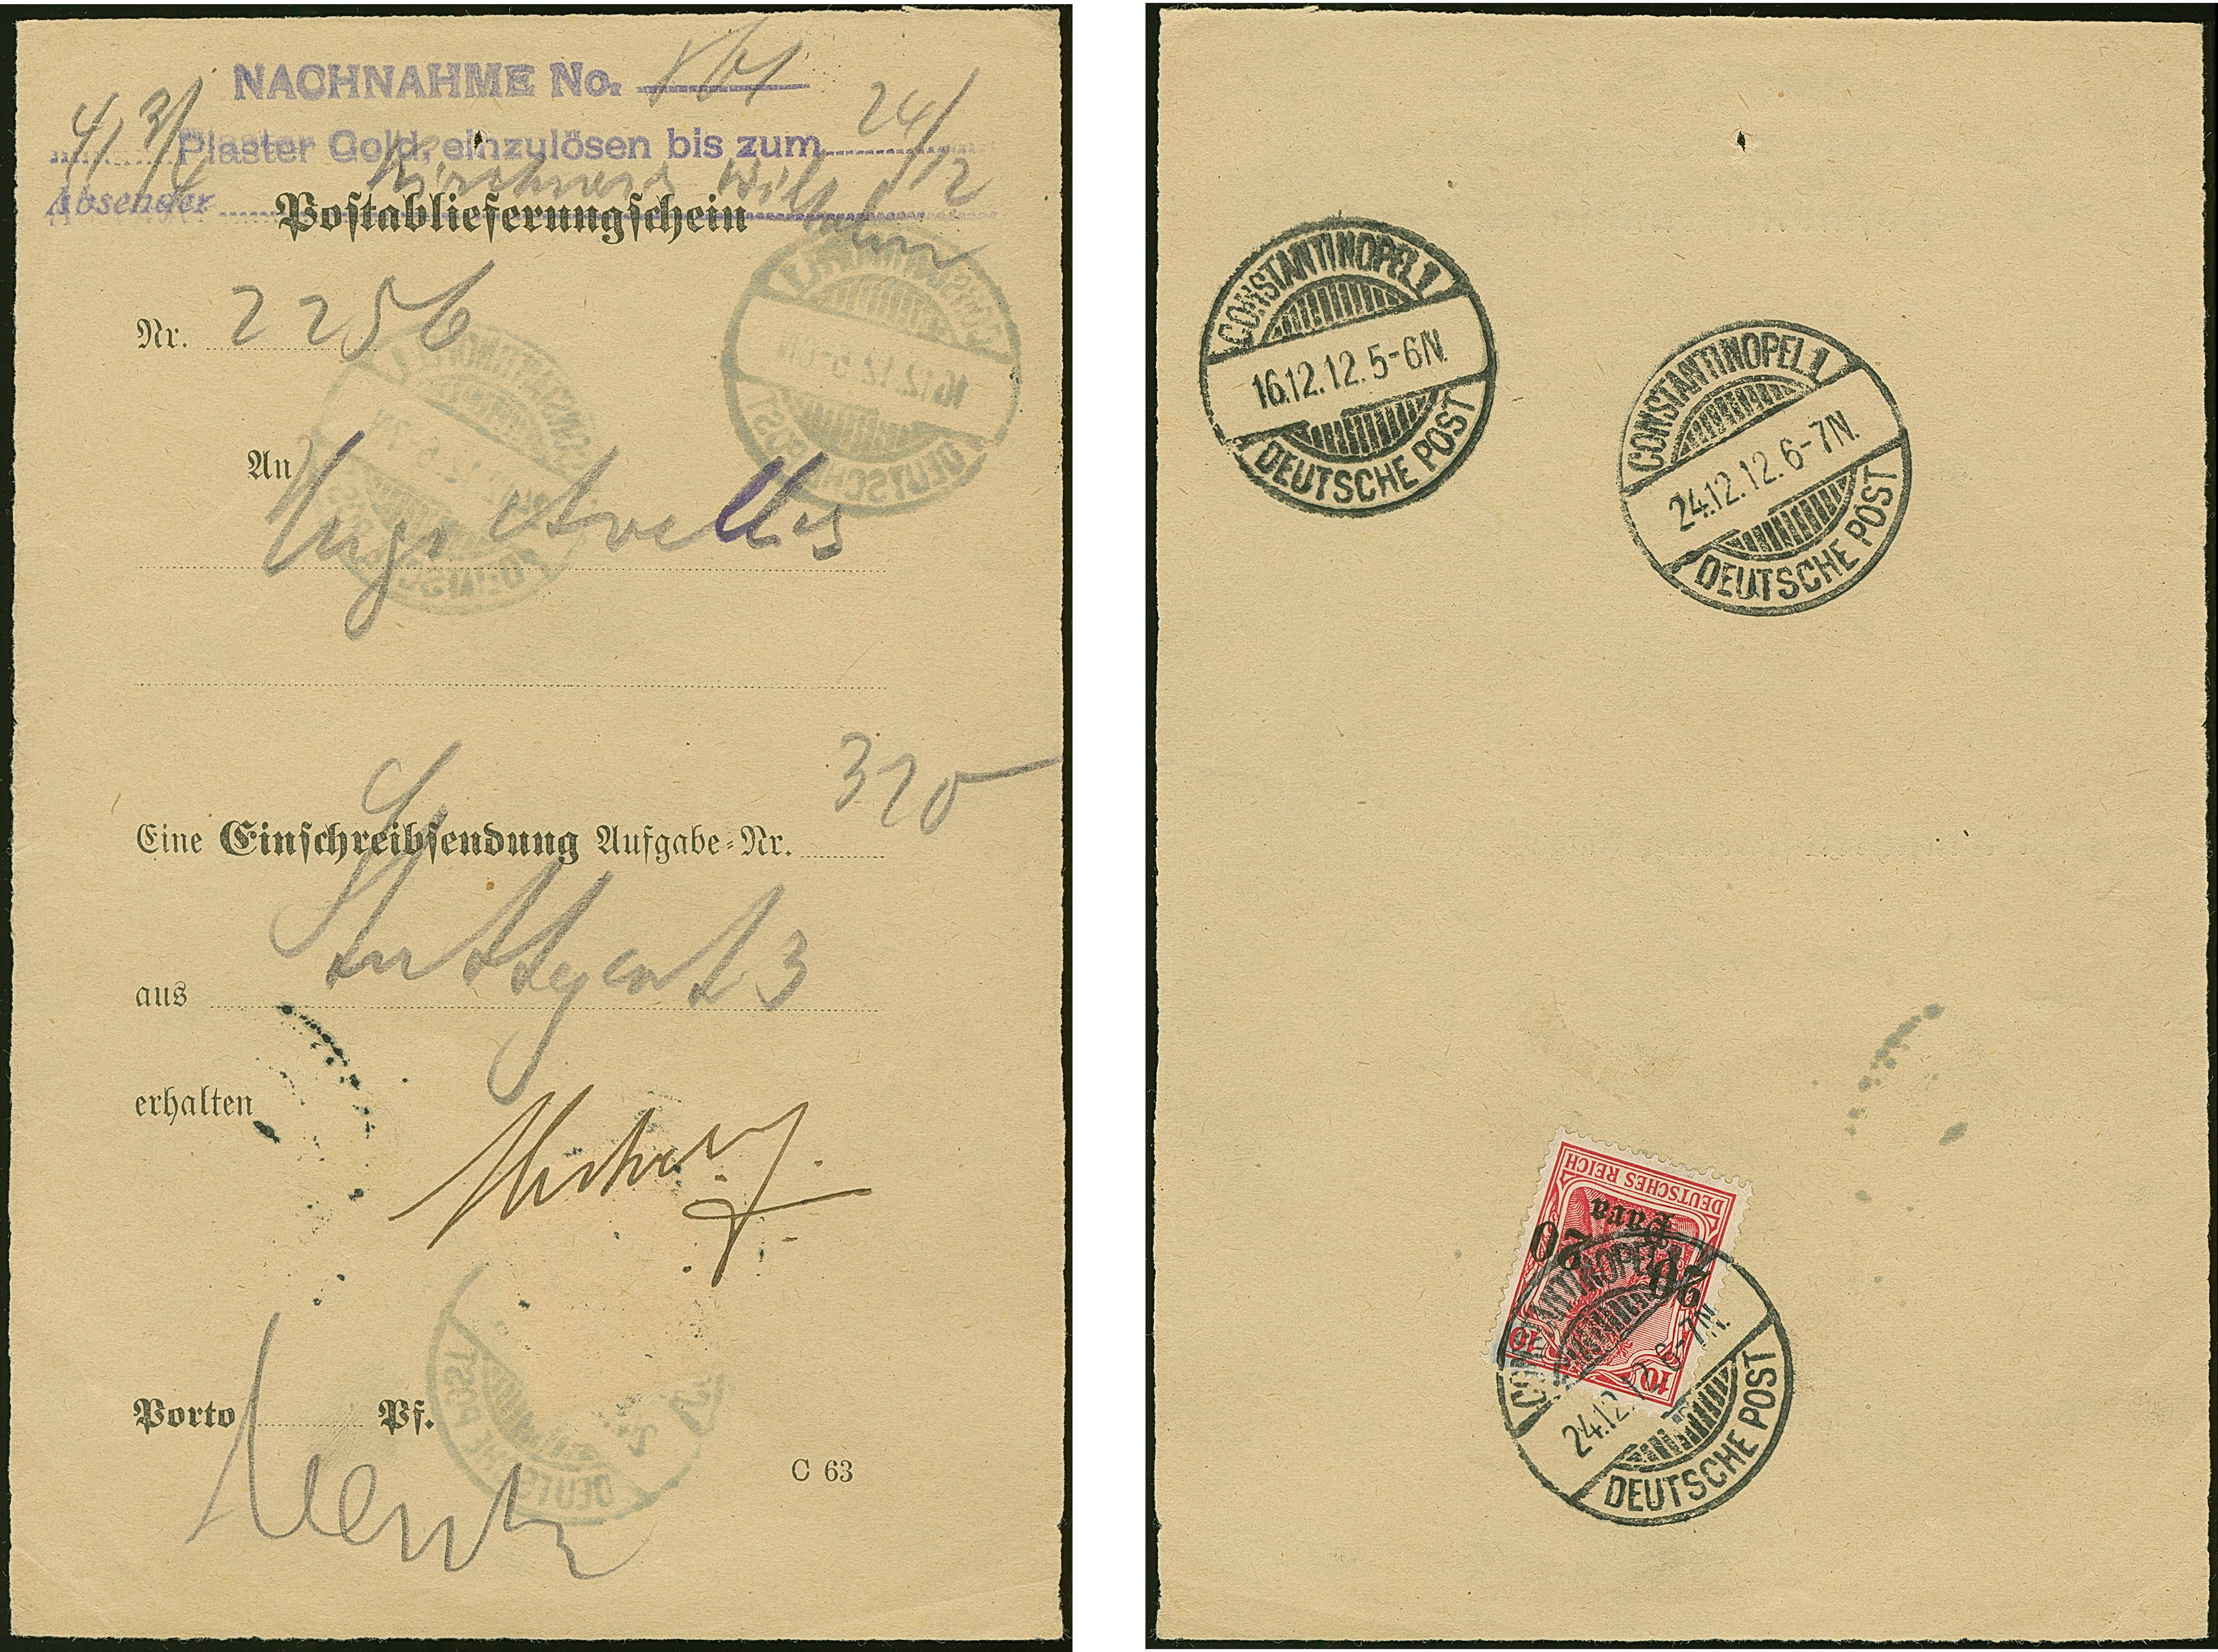 NACHNAHME No.
Piaster Gold, einzulösen bis zum 24/12
Absender Wilhelm
Postablieferungsschein
Nr. 2256
An Hugo
320
Eine Einschreibsendung Aufgabe-Nr.
aus Stuttgart 3
erhalten
Porto Pf.
C 63
CONSTANTINOPEL 1
16.12.12. 5-6N.
DEUTSCHE POST
CONSTANTINOPEL 1
24.12.12. 6-7N.
DEUTSCHE POST
DEUTSCHES REICH
20 Para 20
10 10
CONSTANTINOPEL 1
24.12.12. 6-7N.
DEUTSCHE POST